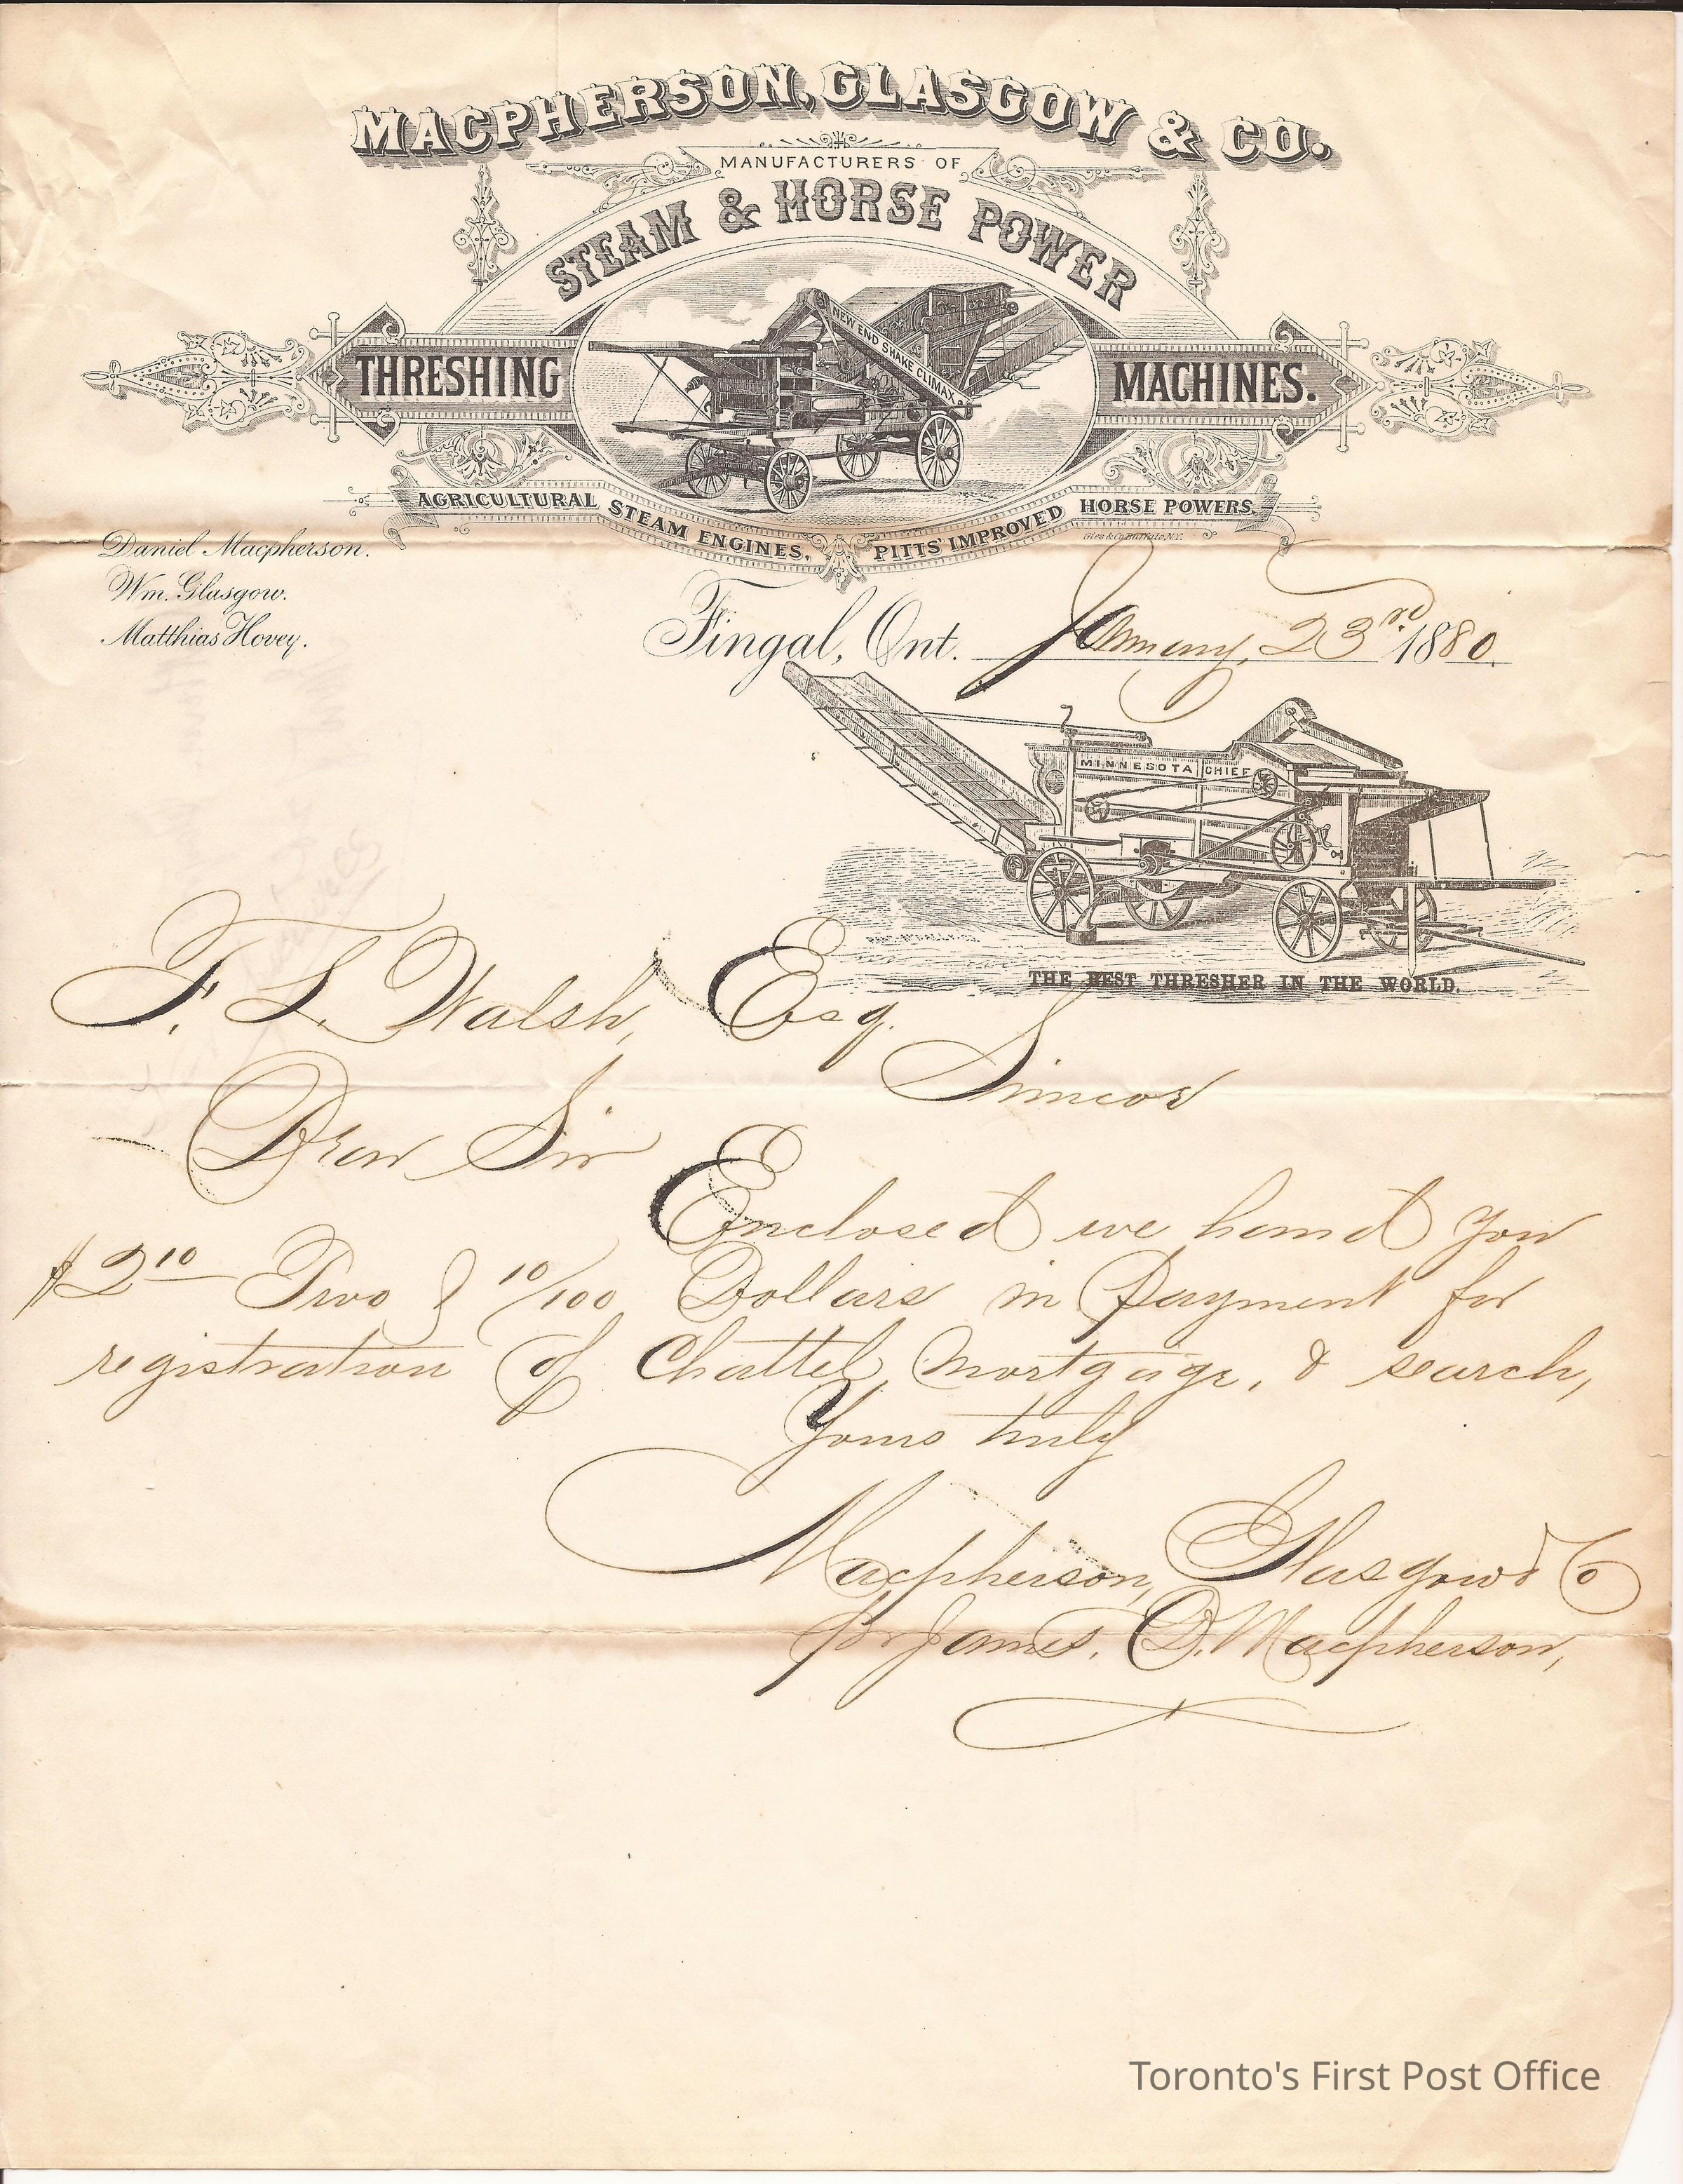 MACPHERSON, GLASGOW & CO.
MANUFACTURERS OF
STEAM & HORSE POWER
THRESHING MACHINES.
NEW END SHAKE CLIMAX
AGRICULTURAL STEAM ENGINES, PITTS' IMPROVED HORSE POWERS.
Daniel Macpherson.
Wm. Glasgow.
Matthias Hovey.
Fingal, Ont. January, 23rd 1880.
MINNESOTA CHIEF
THE BEST THRESHER IN THE WORLD.
F. L. Walsh, Esq.
Simcoe
Dear Sir
Enclosed we hand you
$2 10 Two & 10/100 Dollars in Payment for
registration of Chattel Mortgage, & search,
Yours truly
Macpherson, Glasgow & Co
pr James. D. Macpherson,
Toronto's First Post Office